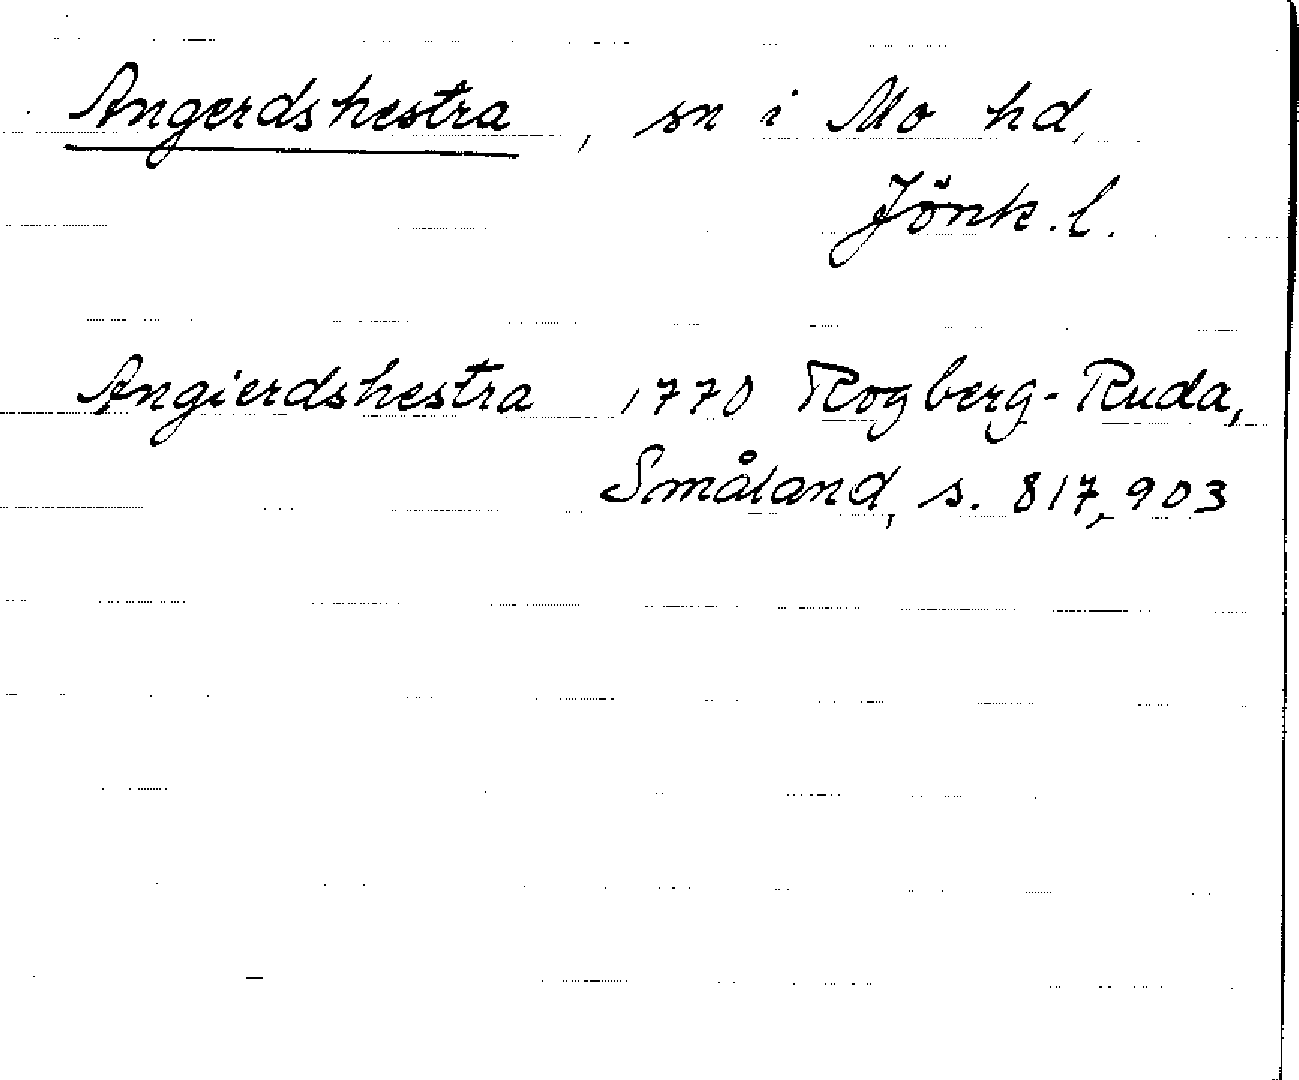 Angerdshestra, sn i Mo hd,
Jönk.l.
Angierdshestra 1770 Rogberg-Ruda,
Småland, s. 817, 903